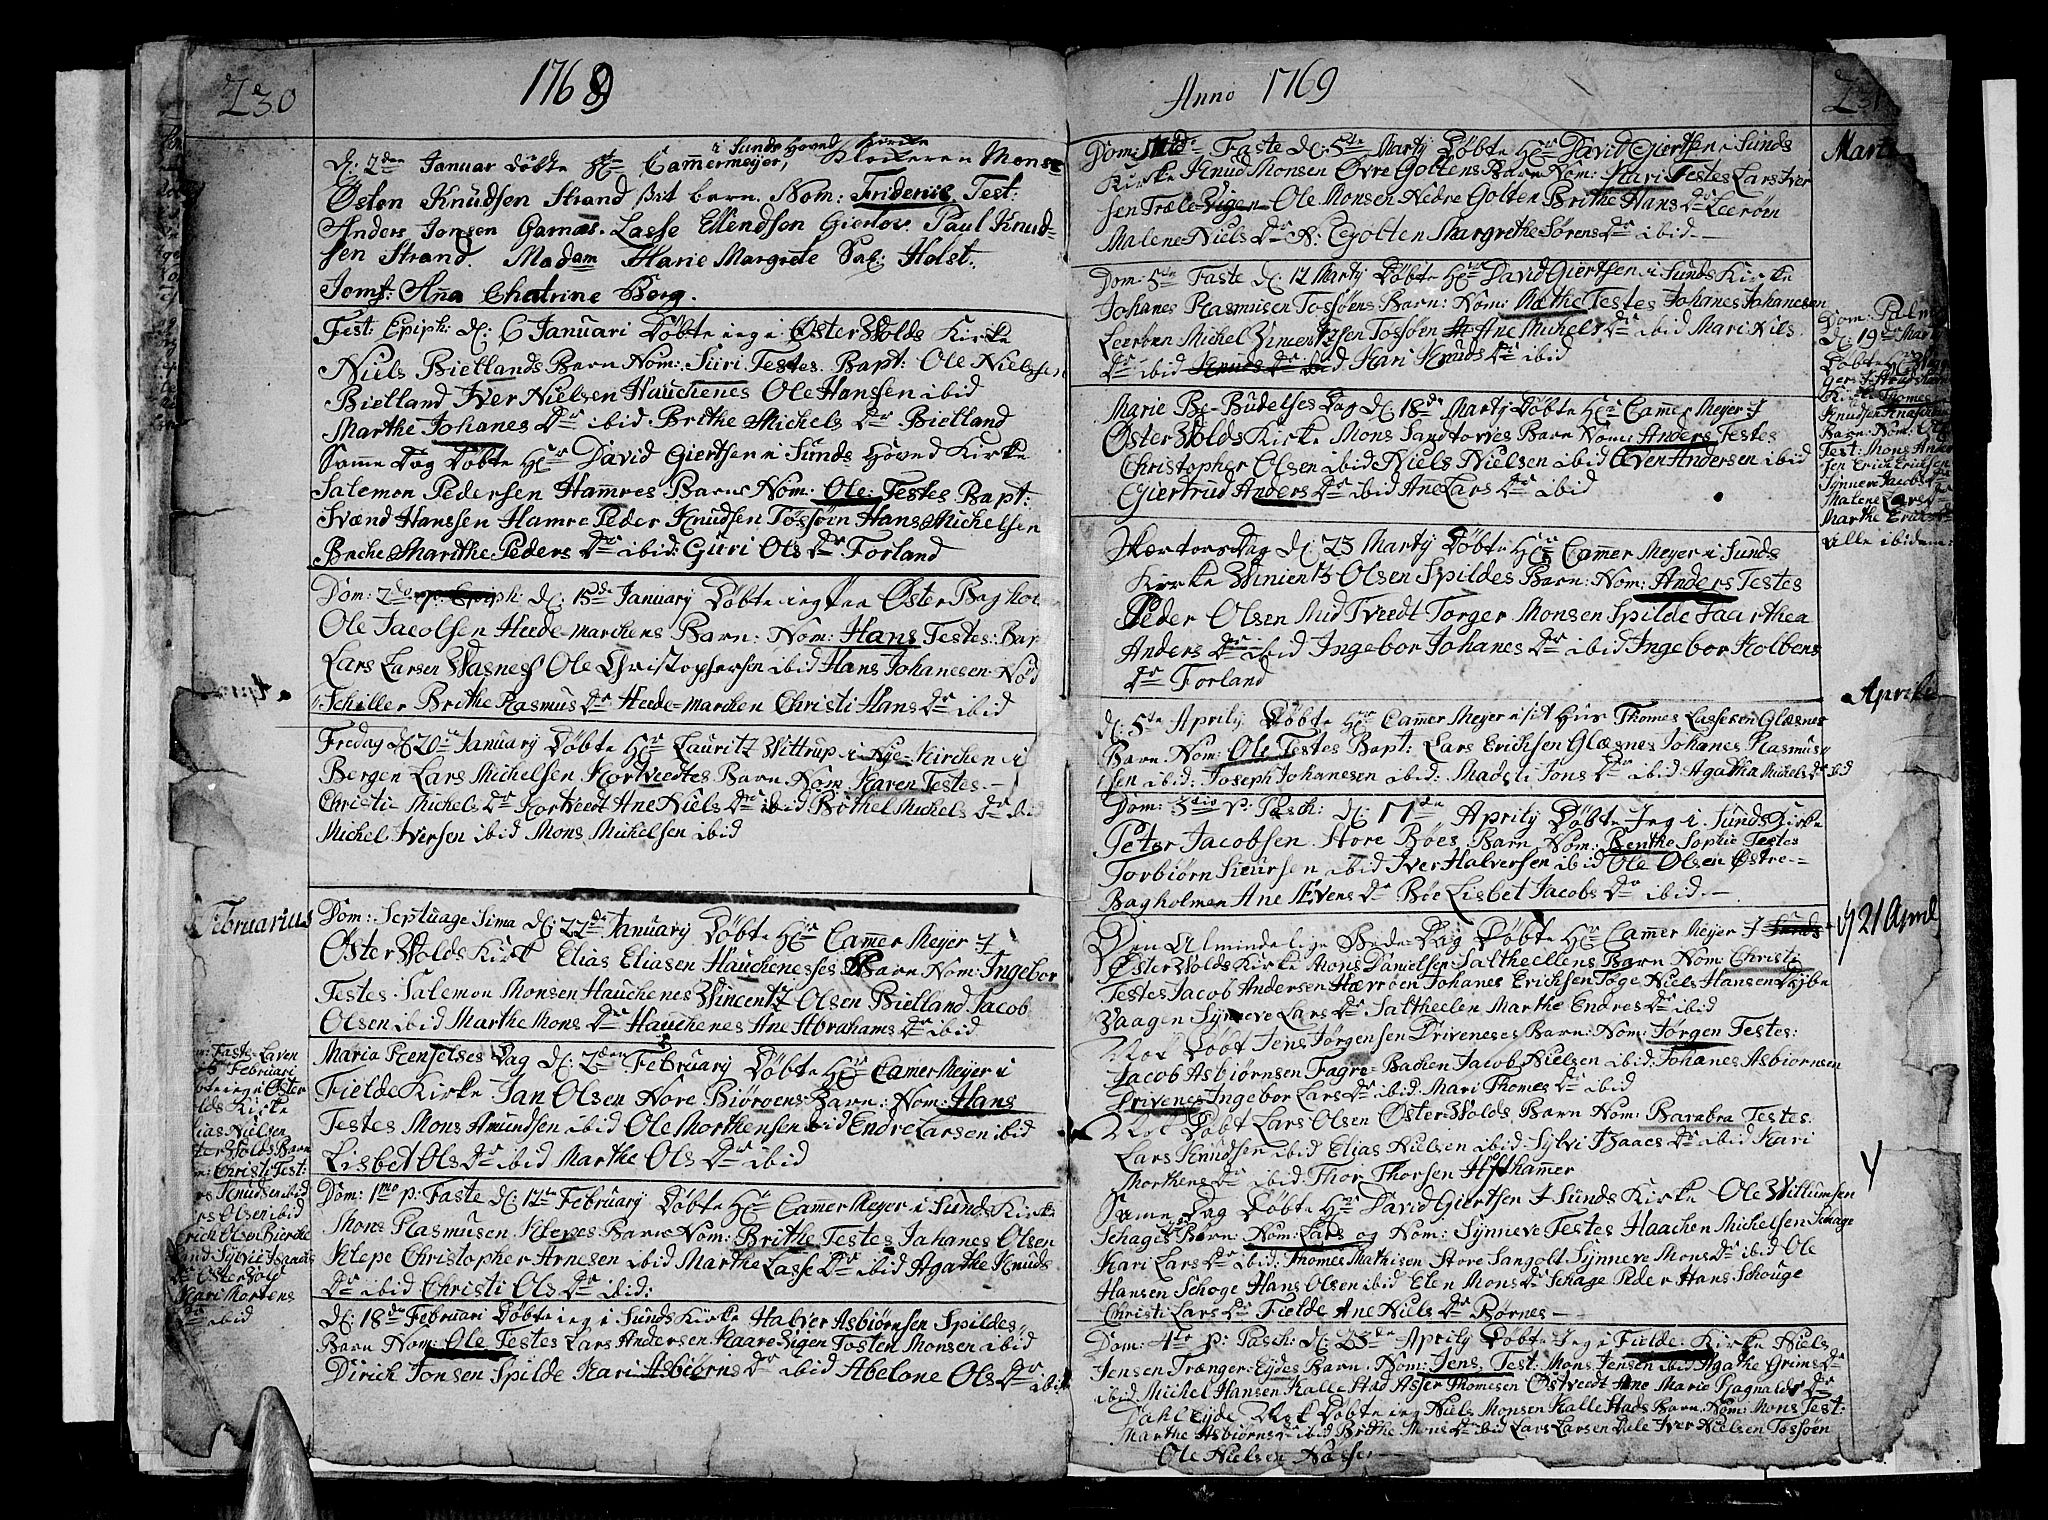 230
1769
d: 2den Januar Døbte Hr Camermeyer, i Sunds Hoved Kircke Klockeren Monsr
Østen Knudsen Strand sit barn. Nom: Friderice. Test:
Anders Jonsen Garnæs. Lasse Ellendsøn Giertov Paul Knud-
sen Strand. Madam Marie Margrete Sal: Holst.
Jomf: Ana Chatrine Berg.
Fest: Epiph: d: 6 Januari Døbte ieg i Øster Wolds Kirke
Niels Biellands Barn Nom: Siiri Testes. Bapt: Ole Nielssen
Bielland Iver Nielsen Hauchenes Ole Hanssen ibid
Marthe Johanes Dr ibid. Brithe Michels Dr Bielland
Samme Dag Døbte Hr David Giertsen i Sunds Hoved Kirke
Salemon Pedersen Hamres Barn Nom: Ole: Testes Bapt:
Svænd Hanssen Hamre Peder Knudsen Tossøen Hans Michelsen
Bache Marithe Peders Dr ibid: Guri Ols Dr Forland
Dom: 2de p: Epiph: d: 15de January Døbte ieg paa Øster Baghol
Ole Jacobsen Hede-marchens Barn: Nom: Hans Testes: Bap
Lars Larsen Wasnes Ole Christophersen ibid Hans Johanesen Nød
Schiller Brithe Rasmus Dr Hede-marchen Christi Hans Dr ibid
Fredag d: 20de January Døbte Hr Lauritz Wittrup i Nye-Kirchen i
Bergen Lars Michelsen Kortvedtes Barn Nom Karen Testes.-
Christi Michels Dr Kortvedt Ane Niels Dr ibid Bothel Michels Dr ibid
Michel Iversen ibid Mons Michelsen ibid
Februarius
Dom: Septuage Sima d: 22de January Døbte Hr Cammer Meyer I
Øster Wolds Kirk Elias Eliasen Hauchenesses Barn Nom: Ingebor
Testes. Salemon Monsen Hauchenes Vincentz Olsen Bielland Jacob
Olsen ibid Marthe Mons Dr Hauchenes Ane Abrahams Dr ibid
Maria Renselses Dag d: 2den February Døbte Hr Camer Meyer i
Fielde Kirke Jan Olsen Nore Biørøens Barn: Nom: Hans
Testes Mons Amundsen ibid Ole Morthensen ibid Endre Larsen ibid
Lisbet Ols Dr ibid Marthe Ols Dr ibid
Dom: 1mo p: Faste d: 12te February Døbte Hr Cammer Meyer i Sunds Kirke
Mons Rasmusen Klepes Barn Nom: Brithe Testes Johanes Olsen
Klepe Christopher Arnesen ibid Marthe Lasse Dr ibid Agathe Knuds
Dr ibid Christi Ols Dr ibid:
d: 18de Februari Døbte ieg i Sunds Kirke Halver Asbiørnsen Spildes
Barn Nom: Ole Testes Lars Andersen Kaare Vigen Tosten Monsen ibid
Dirich Jonsen Spilde Kari Asbiørns Dr ibid Abelone Ols Dr ibid
Faste-Laven
Februari
ieg i Øster
olds Kirke
lias Nielsen
ter Wolds Barn
Christi Test:
Knudsen ibid
rs Olsen ibid
Erich Olsen Bircke
Land: Sylvi Isaacs
Dr Øster Vold
Kari Mortens
Dr ibid
Anno 1769
231
Martz
Dom: Mid-Faste d: 5te Martÿ Døbte Hr David Giertsen i Sunds
Kirke Knud Monsen Øvre Goltens Barn Nom: Kari Testes Lars Iver
sen Træle-Vigen Ole Monsen Nedre Golten Brithe Hans Dr Leerøen
Malene Niels Dr N: Golten Margrethe Sørens Dr ibid-
Dom: 5te Faste d: 12 Martÿ Døbte Hr David Giertsen i Sunds Kirke
Johanes Rasmusen Tossøens Barn: Nom: Marthe Testes Johanes Johanesen
Leerøen Michel Zimentzsen Tossøen Ane Michels Dr ibid Mari Niels
Dr ibid Knuts Dr ibid Kari Knuds Dr ibid
Marie Be-Budelses Dag d: 18de Martÿ Døbte Hr Cammer Meyer I
Øster Wolds Kirke Mons Sandtorves Barn Nom: Anders Testes
Christopher Olsen ibid Niels Nielsen ibid Even Andersen ibid
Giertrud Anders Dr ibid Ane Lars Dr ibid
Skertors Dag d: 23 Martÿ Døbte Hr Cammer Meyer i Sunds
Kirke Winientz Olsen Spildes Barn: Nom: Anders Testes
Peder Olsen Mid Tvedt Torger Monsen Spilde
Anders Dr ibid Ingebor Johanes Dr ibid Ingebor Kolbens
Dr Forland
Dom: Palm
d: 19de Martÿ
Døbte Hr
Kirke Thomes
Knudsen
Barn: Nom: Ole
Test: Mons Ander
sen Erich Erichsen
Synneve Jacobs Dr
Malene Lars Dr
Marthe Erichs Dr
alle ibidem
Aprilis
d: 5te Aprilÿ Døbte Hr Cammer Meyer i sit Hus Thomes Lassesen Glæsnes
Barn Nom: Ole Testes Bapt: Lars Erichsen Glæsnes Johanes Rasmus
sen ibid: Joseph Johanesen ibid: Madsli Jons Dr ibid: Agatha Michels Dr ibid
Dom: 3tio p: Pasch: d: 17de Aprilÿ Døbte Jeg i Sunds Kirke
Peter Jacobsen Store Bøes Barn Nom: Benthe Sophie Testes
Torbiørn Siursen ibid Iver Halversen ibid Ole Olsen Østre-
Bagholmen Ane Evens Dr Bøe Lisbet Jacobs Dr ibid.-
d 21 April
Den Almindelige Bede Dag Døbte Hr Cammer Meyer I Sunds
Øster Wolds Kirke Mons Danielsen Saltheellens Barn Nom: Christi
Testes Jacob Andersen Hævrøen Johanes Erichsen Toge Niels Hansen Dybe
Vaagen Synneve Lars Dr Saltheelen Marthe Endres Dr ibid
Blev Døbt Jens Jørgensen Priveneses Barn: Nom: Jørgen Testes:
Jacob Asbiørnsen Fagre-Bachen Jacob Nielsen ibid: Johanes Asbiørnsen
Privenes Ingebor Lars Dr ibid: Mari Thomes Dr ibid
Blev Døbt Lars Olsen Øster Wolds Barn Nom: Barabra Testes:
Lars Knudsen ibid Elias Nielsen ibid: Sylvi Isaacs Dr ibid Kari
Morthens Dr ibid: Thor Thorsen Hofthamer
Same Dag Døbte Hr David Giertsen I Sunds Kirke Ole Willumsen
Schages Barn: Nom: Lars og Nom: Synneve Testes Haachen Michelsen Schage
Kari Lars Dr ibid: Thomes Mathisen Store Sangolt Synneve Mons Dr ibid Ole
Hansen Schoge Hans Olsen ibid Elen Mons Dr Schage Peder Hans Schouge
Christi Lars Dr Fielde Ane Niels Dr Børnes-
Dom: 4te p: Pasch: d: 23de Aprilÿ Døbte Jeg i Fielde Kirke Niels
Jensen Trænger-Eydes Barn. Nom: Jens. Test: Mons Jensen ibid Agathe Grims Dr
ibid Michel Hansen Kalle Stad Asser Thomesen Østvedt Ane Marie Ragnalds Dr
Dahl Eyde Blev Døbte ieg Niels Monsen Kalle Stads Barn. Nom: Mons Test:
Marthe Asbiørns Dr ibid Brithe Mons Dr ibid Lars Larsen Dale Iver Nielsen Tossøen
Ole Nielsen Næsse